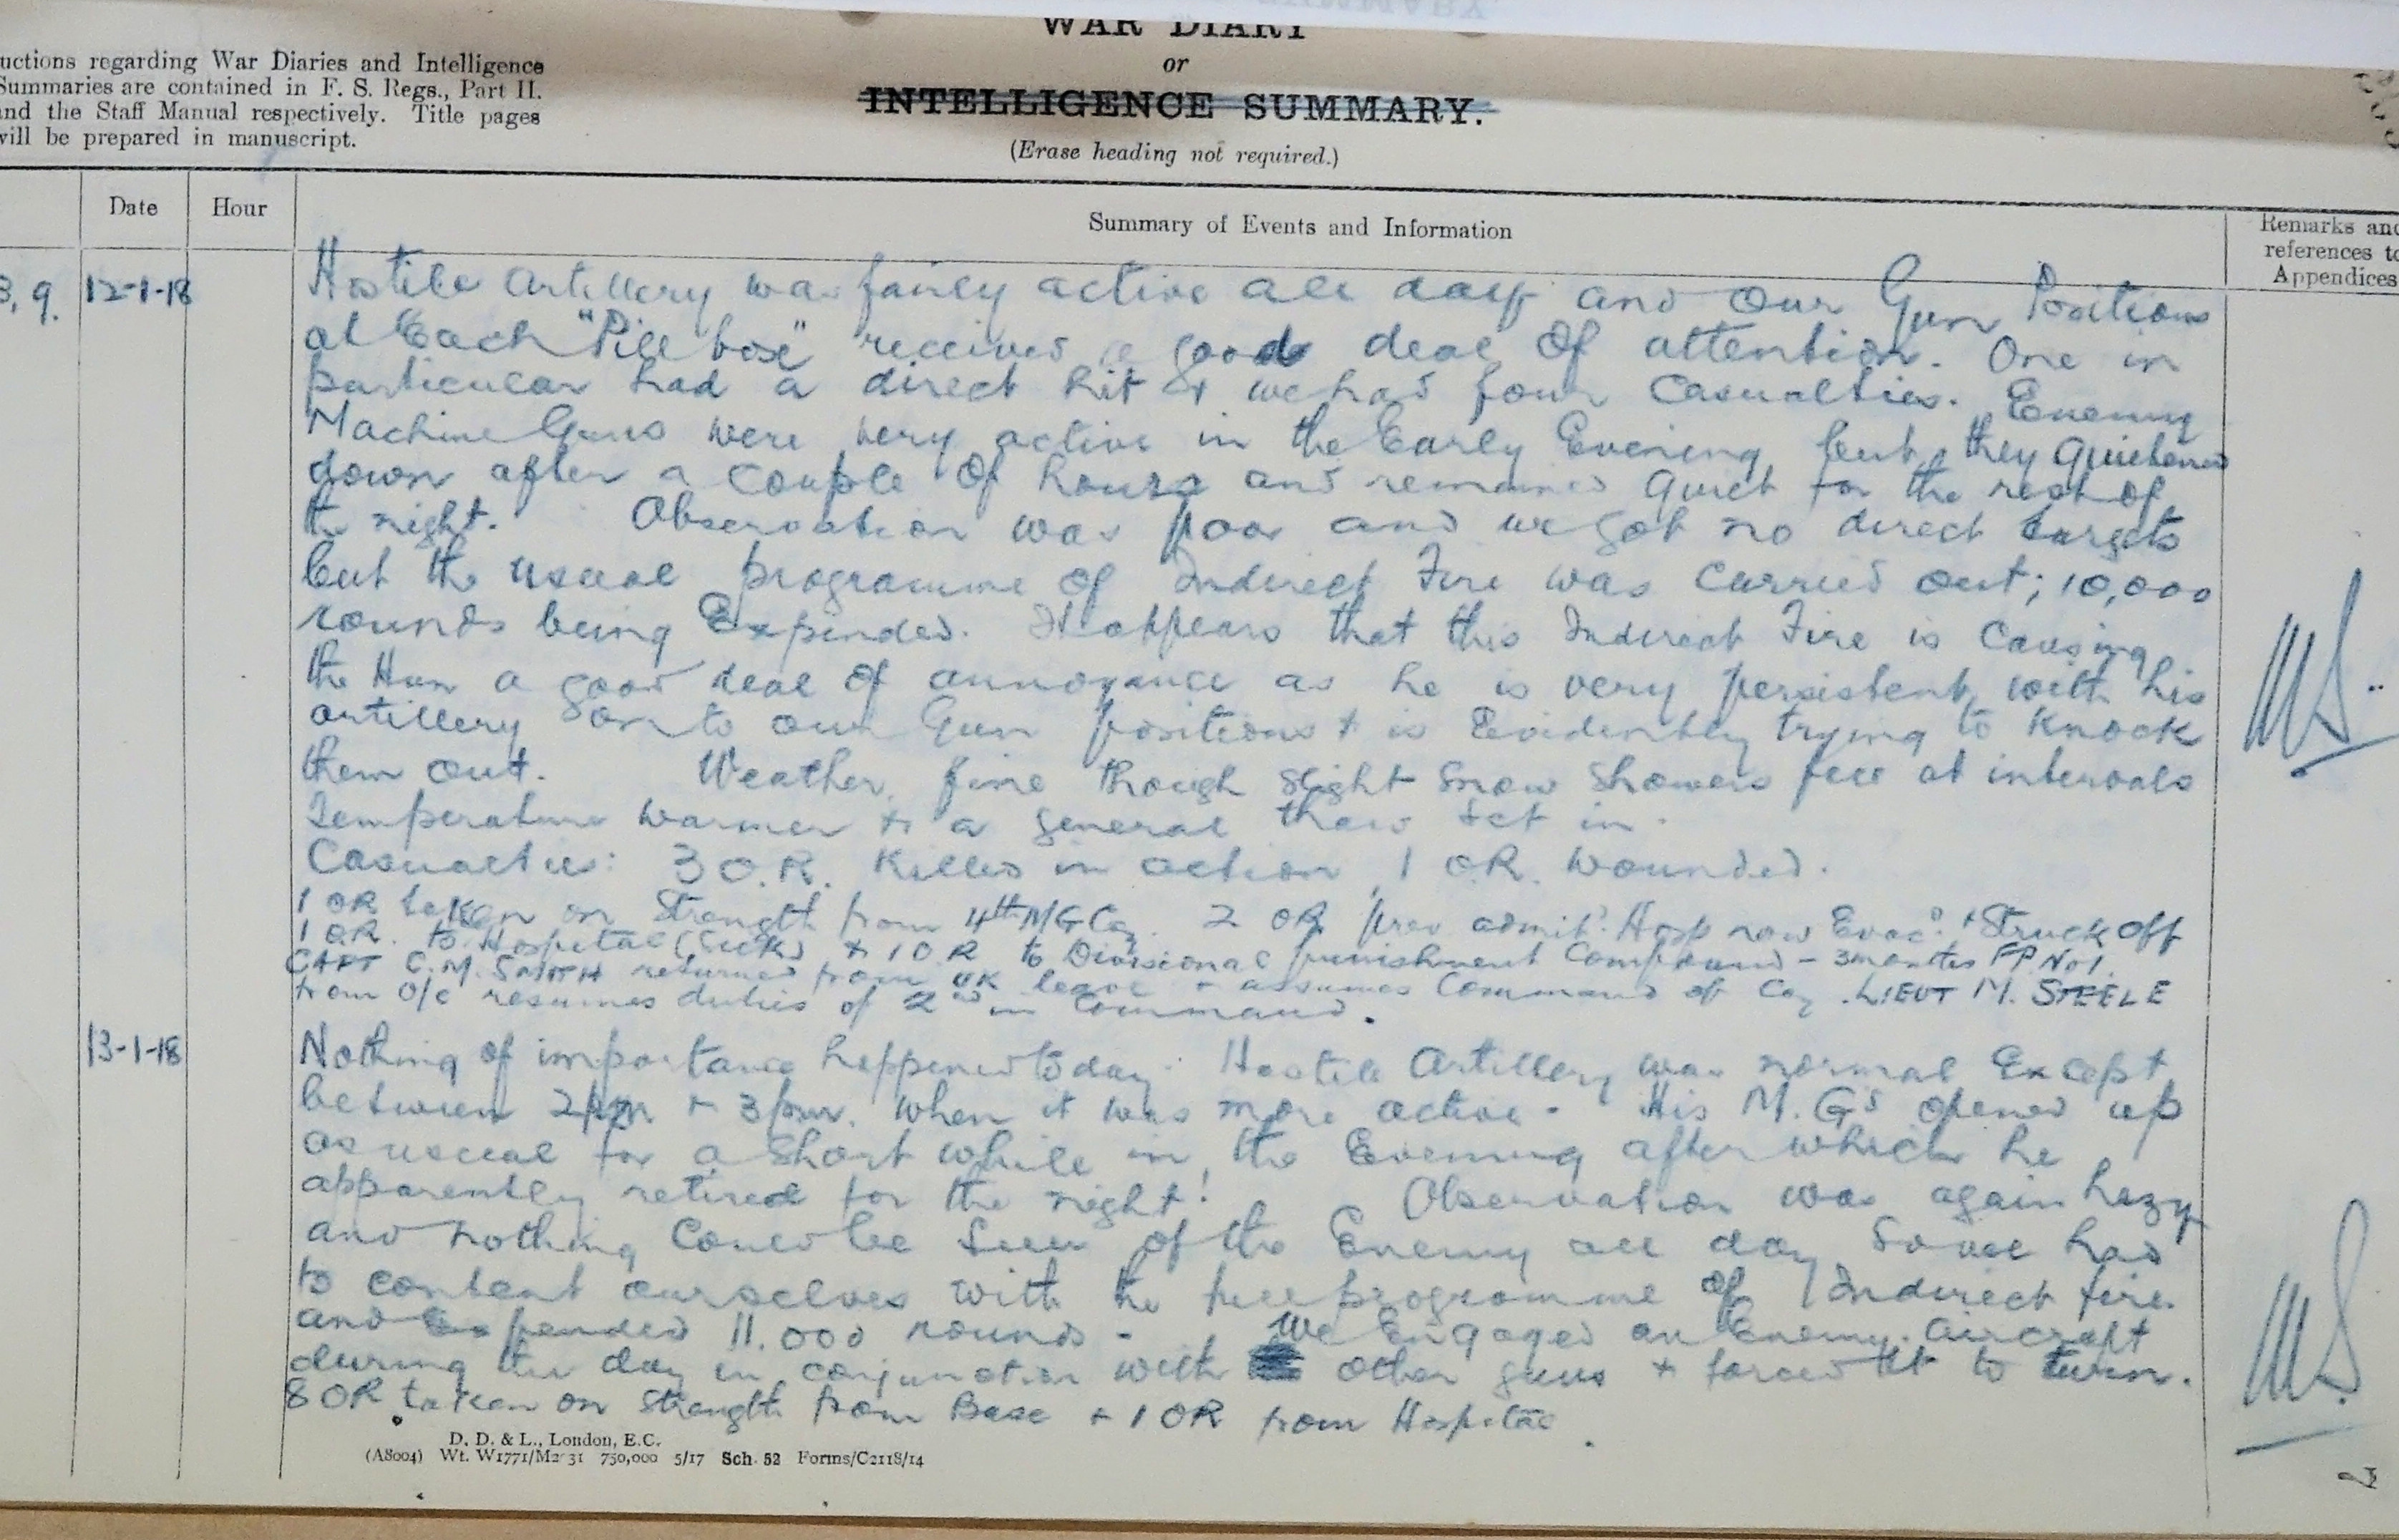 WAR DIARY
or
INTELLIGENCE SUMMARY.
(Erase heading not required.)
uctions regarding War Diaries and Intelligence
Summaries are contained in F. S. Regs., Part II.
and the Staff Manual respectively. Title pages
will be prepared in manuscript.
Date
Hour
Summary of Events and Information
Remarks and
references to
Appendices
3, 9.
12-1-18
Hostile Artillery was fairly active all day and our Gun Positions
at Each "Pill box" received a good deal of attention. One in
particular had a direct hit & we had four casualties. Enemy
Machine Guns were very active in the Early Evening but they quietened
down after a couple of hours and remained quiet for the rest of
the night. Observation was poor and we got no direct targets
but the usual programme of Indirect Fire was carried out; 10,000
rounds being Expended. It appears that this Indirect Fire is causing
the Hun a good deal of annoyance as he is very persistent with his
artillery on to our Gun positions & is Evidently trying to knock
them out. Weather fine though slight snow showers fell at intervals
Temperature warmer & a general thaw set in.
Casualties: 3 O.R. Killed in action 1 O.R. Wounded.
1 OR taken on Strength from 4th MG Coy. 2 OR prev admitd Hosp now Evacd & Struck off
1 O.R. to Hospital (Sick) & 1 O.R to Divisional punishment Compound - 3 months FP No 1.
CAPT C.M. SMITH returned from UK leave & assumes Command of Coy. LIEUT M. STEELE
from O/C resumes duties of 2nd in Command.
13-1-18
Nothing of importance happened today. Hostile Artillery was normal Except
between 2pm & 3pm. when it was more active. His M.Gs opened up
as usual for a short while in the Evening after which he
apparently retired for the night! Observation was again hazy
and nothing could be seen of the Enemy all day so we had
to content ourselves with the full programme of Indirect fire
and Expended 11.000 rounds. We Engaged an Enemy aircraft
during the day in conjunction with other guns & forced it to turn.
8 OR taken on Strength from Base & 1 OR from Hospital.
MS.
MS.
D. D. & L., London, E.C.
(A8004) Wt. W1771/M2031 750,000 5/17 Sch. 52 Forms/C2118/14